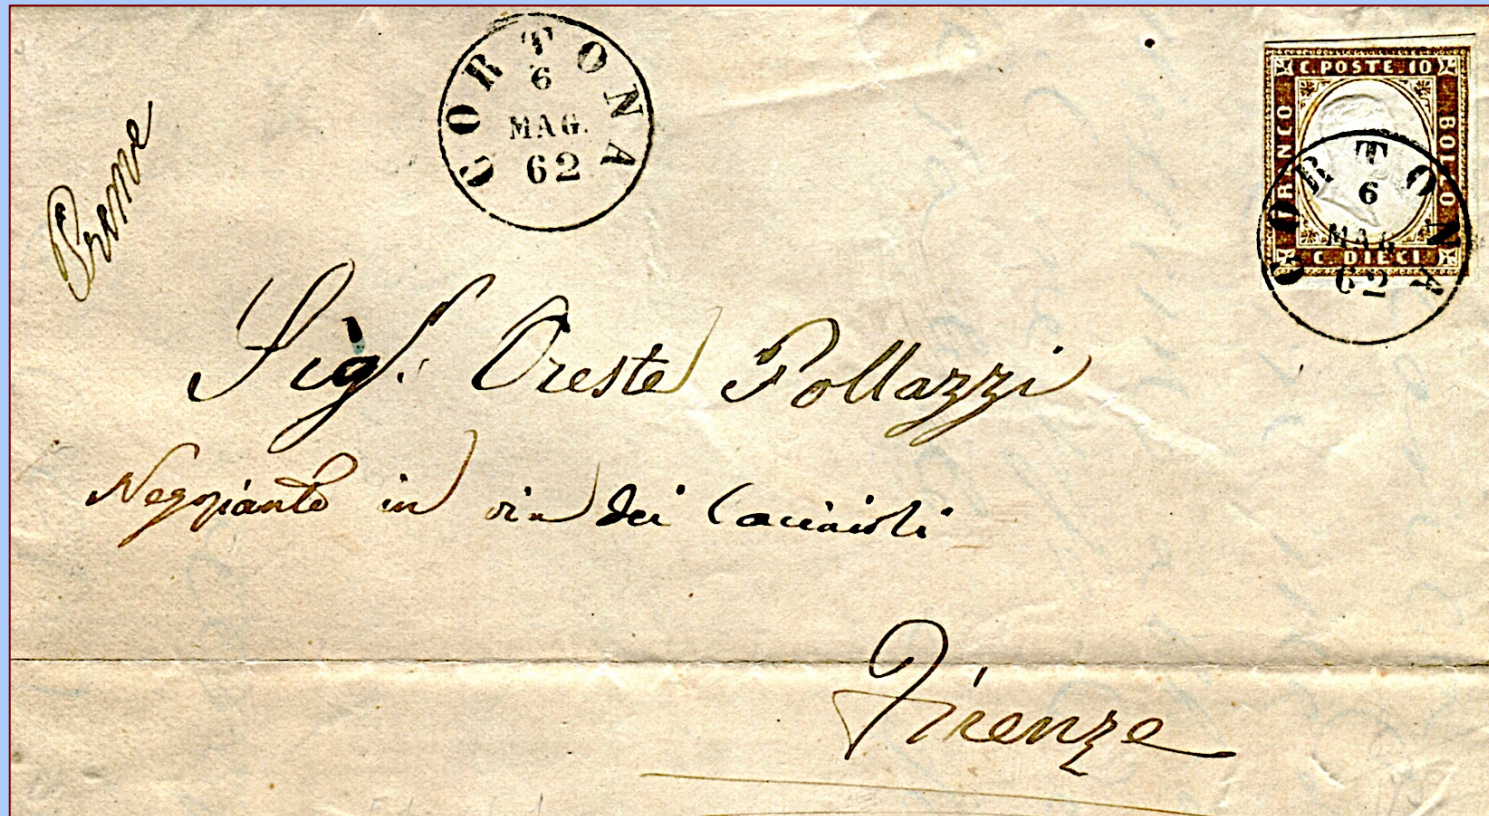 CORTONA
6
MAG.
62
C. POSTE 10
FRANCO
BOLLO
C. DIECI
CORTONA
6
MAG
62
Sigr. Oreste Pollazzi
Negoziante in via dei Caciaioli
Firenze